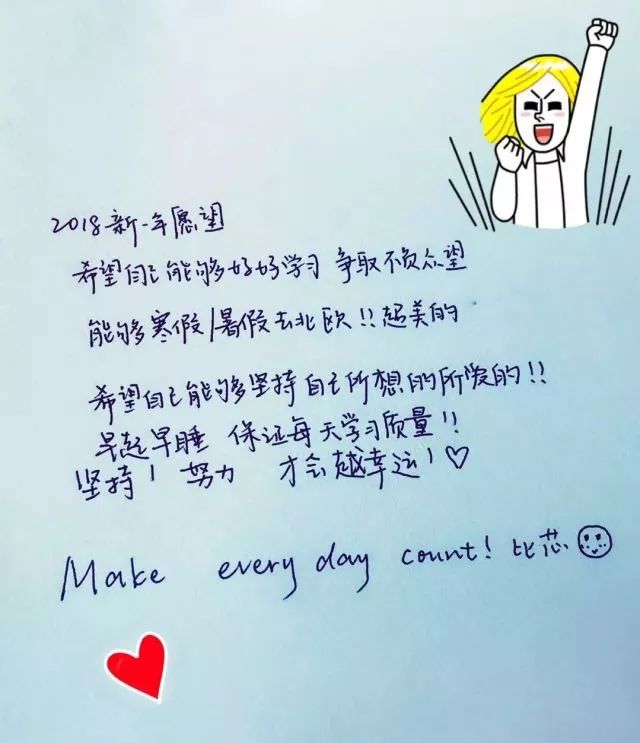 2018新一年愿望
希望自己能够好好学习 争取不负众望
能够寒假/暑假去北欧!!超美的
希望自己能够坚持自己所想的所爱的!!
早起早睡 保证每天学习质量!!
坚持! 努力 才会越幸运!♡
Make every day count! 比芯